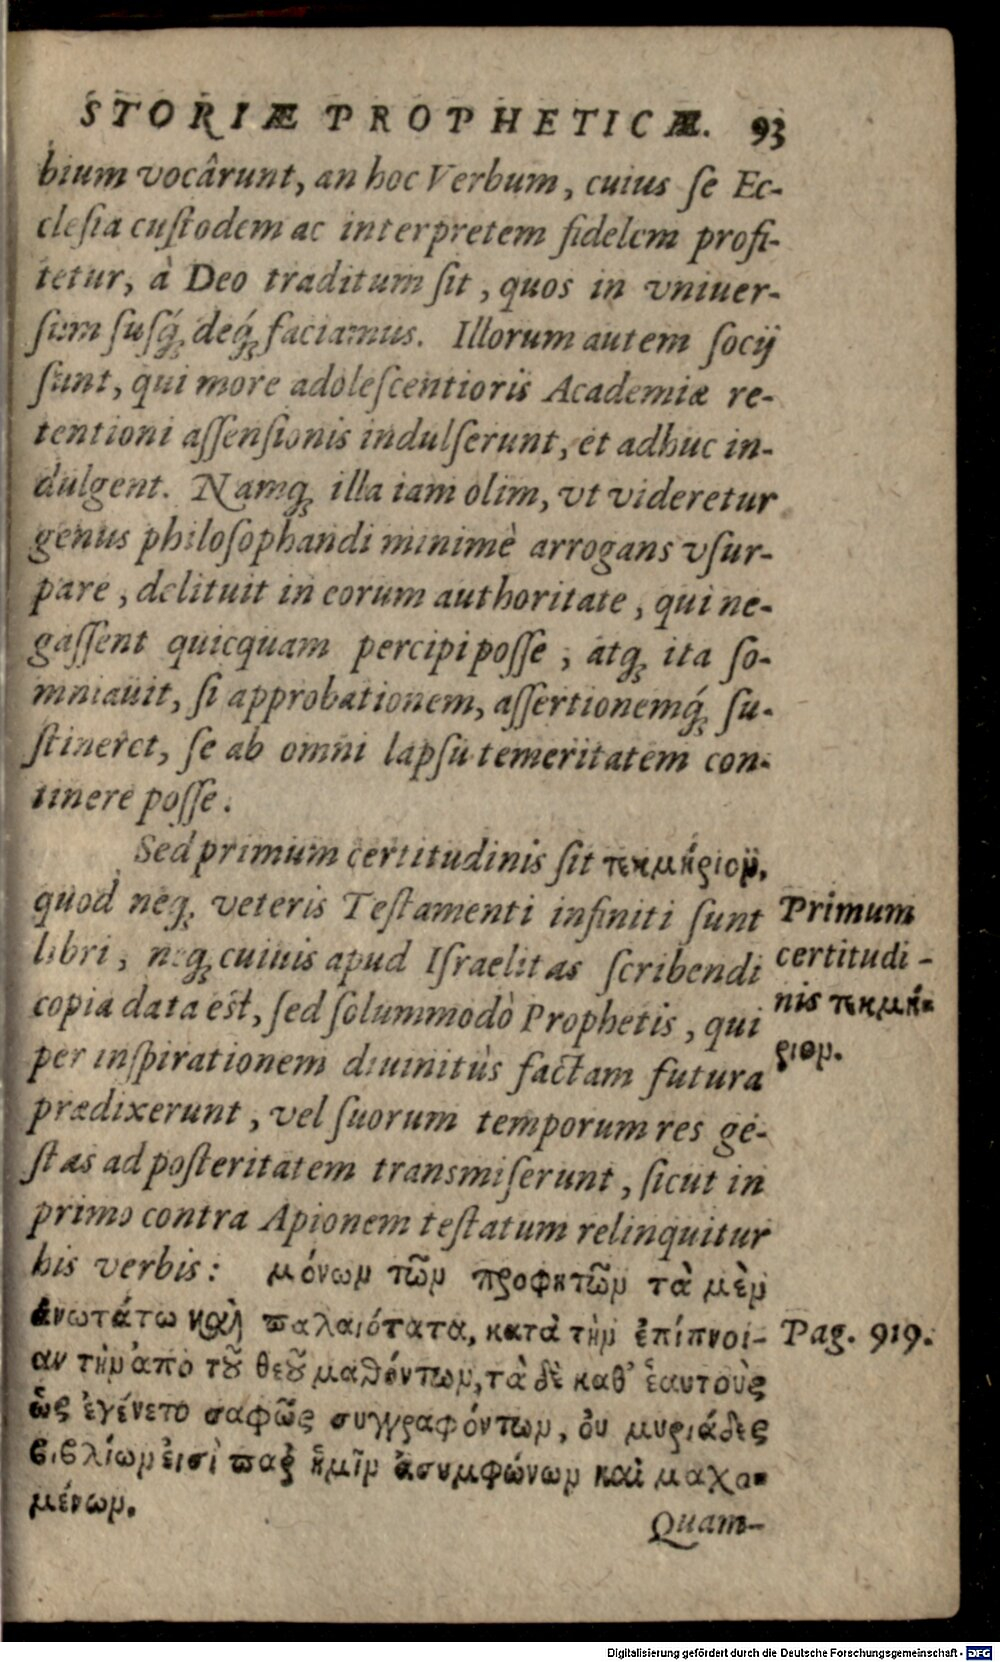 STORIÆ PROPHETICÆ. 93
bium vocârunt, an hoc Verbum, cuius ſe Ec-
cleſia cuſtodem ac interpretem fidelem profi-
tetur, à Deo traditum ſit, quos in vniuer-
ſum ſuſq́; deq́; faciamus. Illorum autem ſocij
ſunt, qui more adoleſcentioris Academiæ re-
tentioni aſſenſionis indulſerunt, et adhuc in-
dulgent. Namq; illa iam olim, vt videretur
genus philoſophandi minimè arrogans vſur-
pare, delituit in eorum authoritate, qui ne-
gaſſent quicquam percipi poſſe, atq; ita ſo-
mniauit, ſi approbationem, aſſertionemq́; ſu-
ſtineret, ſe ab omni lapſu temeritatem con-
tinere poſſe.
Sed primum certitudinis ſit τεκμήριον,
quod neq; veteris Teſtamenti infiniti ſunt
libri, neq; cuiuis apud Iſraelitas ſcribendi
copia data eſt, ſed ſolummodò Prophetis, qui
per inſpirationem diuinitùs factam futura
prædixerunt, vel ſuorum temporum res ge-
ſtas ad poſteritatem transmiſerunt, ſicut in
primo contra Apionem teſtatum relinquitur
his verbis: μόνων τῶν προφητῶν τὰ μὲν
ἀνωτάτω καὶ παλαιότατα, κατὰ τὴν ἐπίπνοι-
αν τὴν ἀπὸ τοῦ θεοῦ μαθόντων, τὰ δὲ καθ᾽ ἑαυτοὺς
ὡς ἐγένετο σαφῶς συγγραφόντων, ὀυ μυριάδες
βιβλίων ἐισὶ παρ᾽ ἡμῖν ἀσυμφώνων καὶ μαχο-
μένων.
Quam-
Primum
certitudi-
nis τεκμή-
ριον.
Pag. 919.
Digitalisierung gefördert durch die Deutsche Forschungsgemeinschaft - DFG